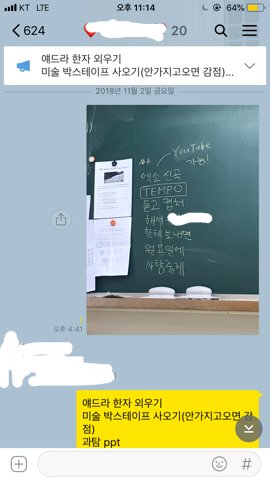 KT LTE 오후 11:14 64%
624 20
얘드라 한자 외우기
미술 박스테이프 사오기(안가지고오면 감점)...
2018년 11월 2일 금요일
YouTube
가능!
엑소 신곡
TEMPO
듣고 캡처
해서
한테 보내면
월요일에
사탕줄게
오후 4:41
얘드라 한자 외우기
미술 박스테이프 사오기(안가지고오면 감
점)
과탐 ppt
#